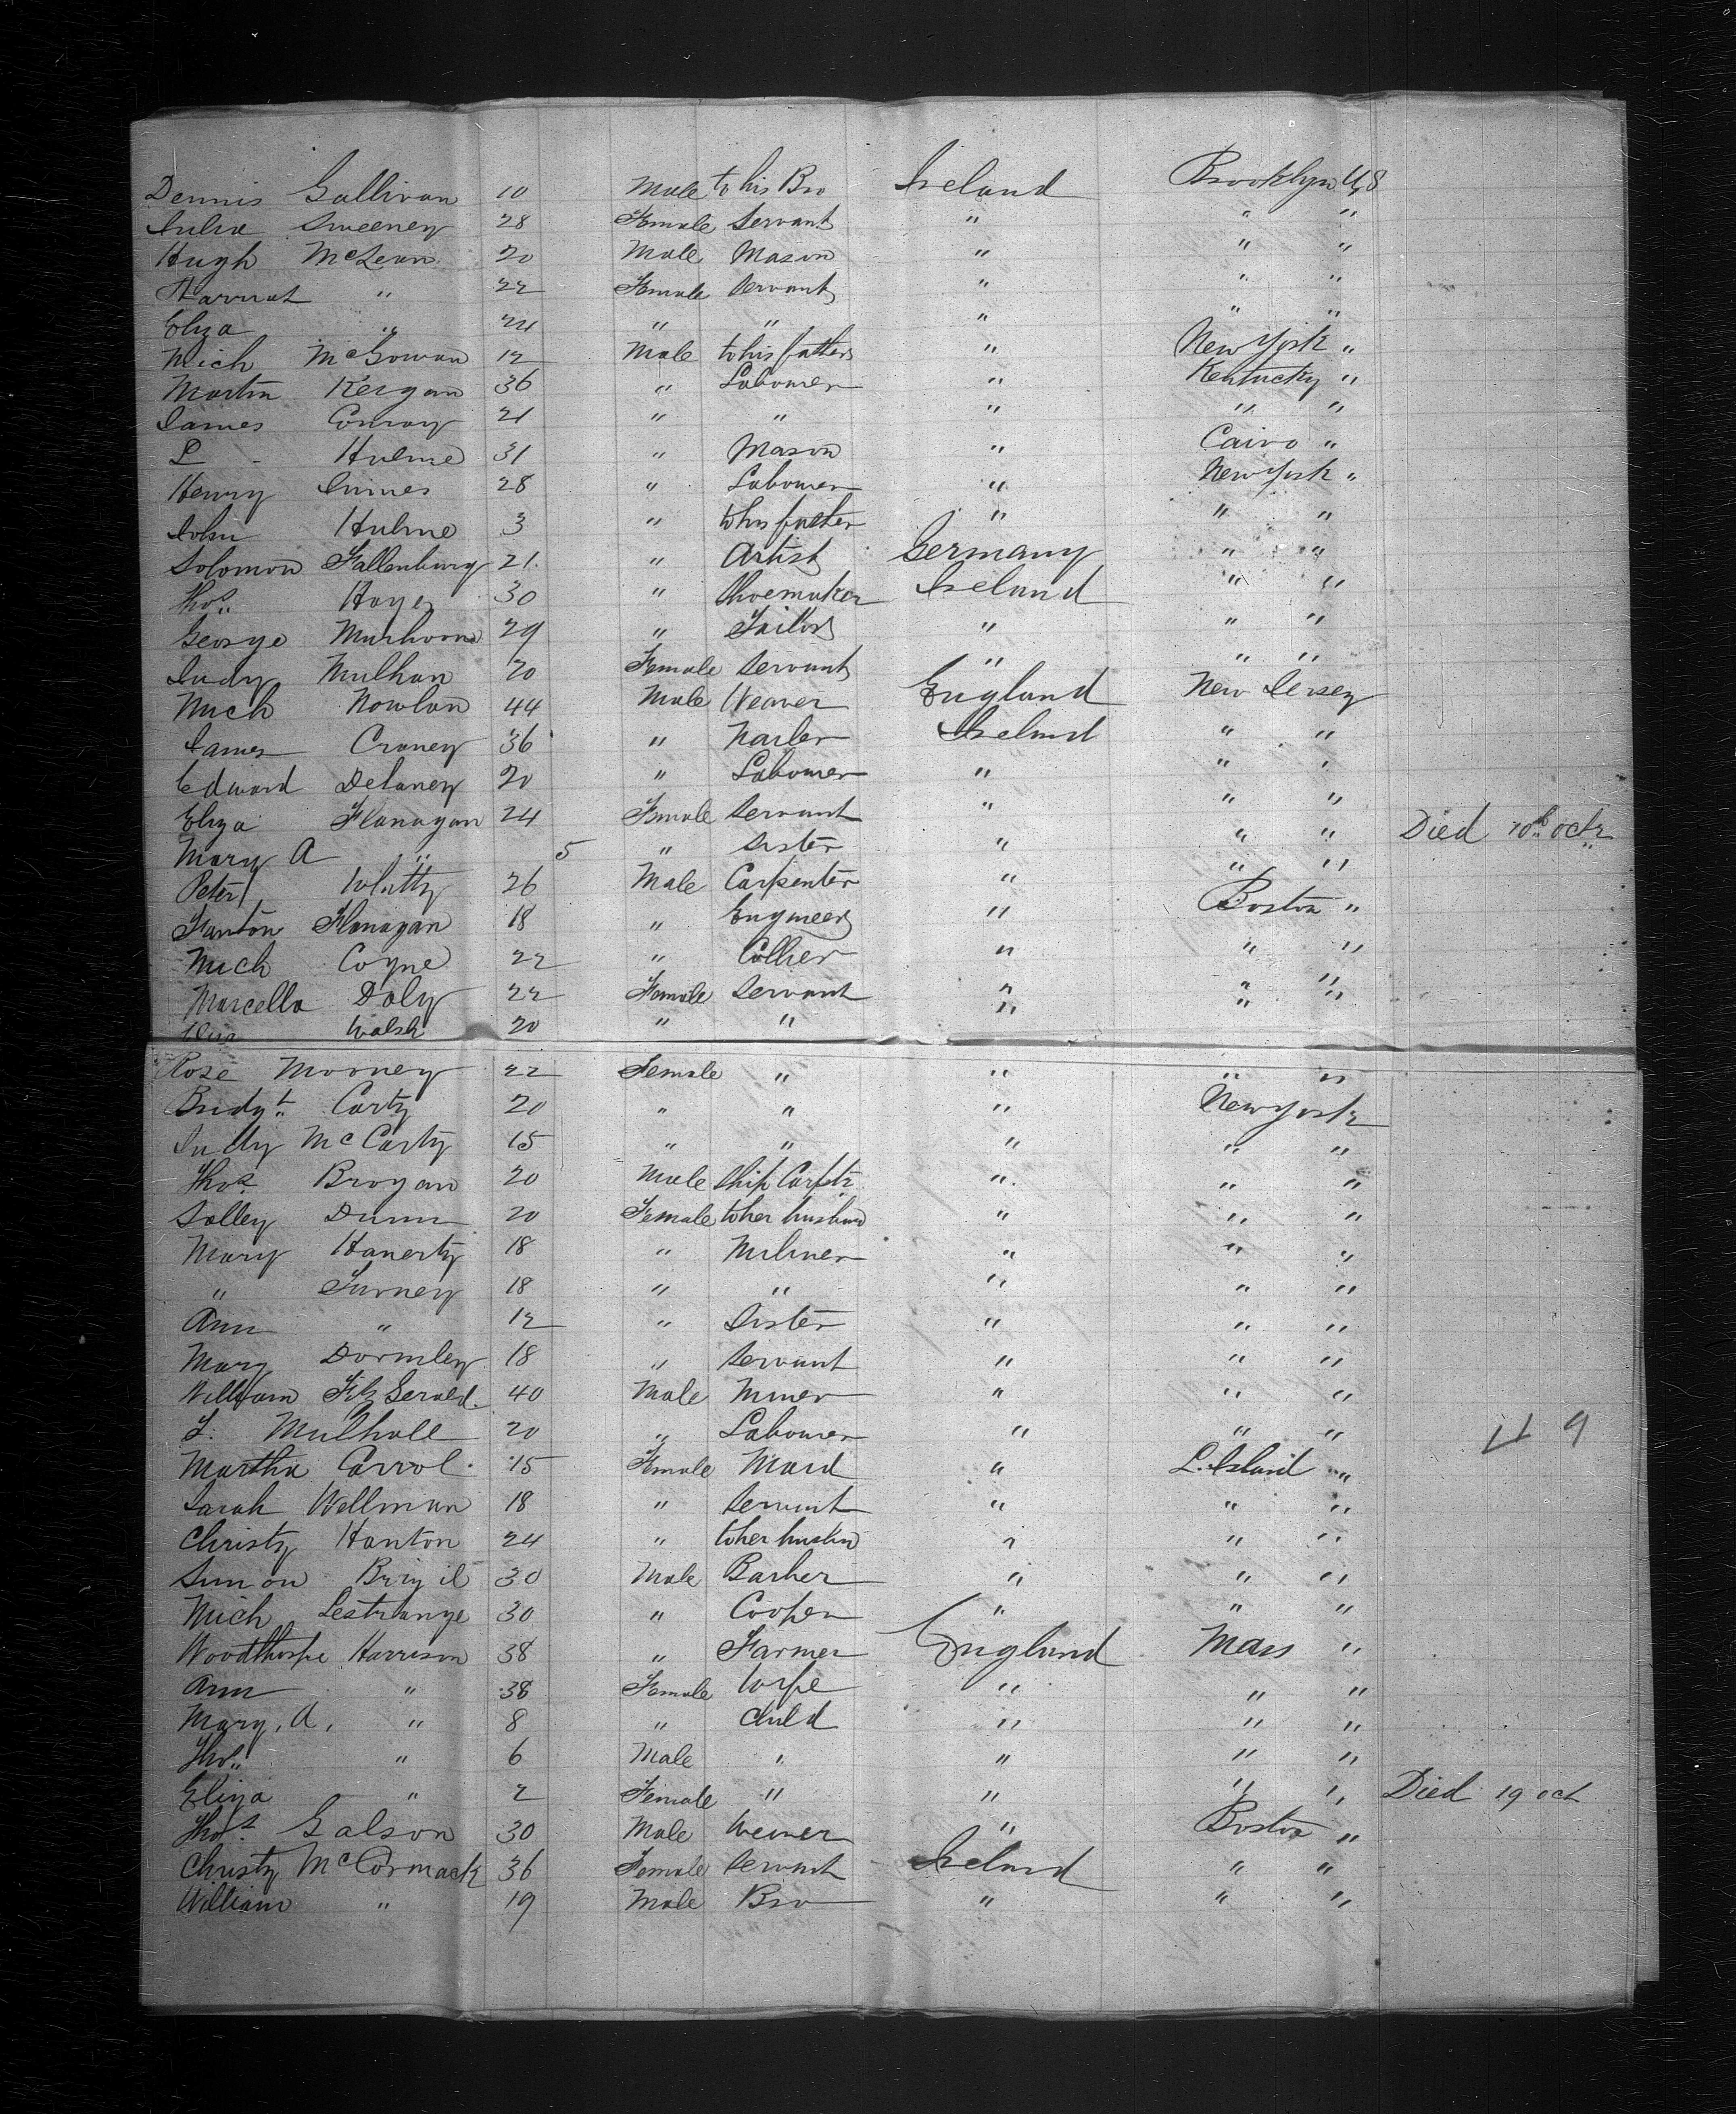 Dennis Gallivan 10 Male to his Bro Ireland Brooklyn US
Julia Sweeney 28 Female Servant " " "
Hugh McLean 20 Male Mason " " "
Harriat " 22 Female Servant " " "
Eliza " 24 " " " " "
Mich McGowan 12 Male to his father " New York "
Martin Keegan 36 " Labourer " Kentucky "
James Conroy 21 " " " " "
L Hulme 31 " Mason " Cairo "
Henry 28 " Labourer " New York "
John Hulme 3 " to his father " " "
Solomon Fallenburg 21 " Artist Germany " "
Thos Hayes 30 " Shoemaker Ireland " "
George 29 " Tailor " " "
Judy Mulhan 20 Female Servant " " "
Mich Nowlan 44 Male Weaver England New Jersey
James Craney 36 " Nailer Ireland " "
Edward Delaney 20 " Labourer " " "
Eliza Flanagan 24 Female Servant " " "
Mary A " 5 " Sister " " " Died 10th Octr
Peter Whitty 26 Male Carpenter " " "
Flanagan 18 " Engineer " Boston "
Mich Coyne 22 " Collier " " "
Marcella Daly 22 Female Servant " " "
Walsh 20 " " " " "
Rose Mooney 22 Female " " " "
Bridgt Carty 20 " " " New York
Judy McCarty 15 " " " " "
Thos Brogan 20 Male Ship Carptr " " "
Salley Dunn 20 Female to her husband " " "
Mary Hanerty 18 " Miliner " " "
" Furney 18 " " " " "
Ann " 12 " Sister " " "
Mary Dormley 18 " Servant " " "
William FitzGerald 40 Male Miner " " "
T. Mulhall 20 " Labourer " " "
Martha Carrol 15 Female Maid " L. Island "
Sarah Wellman 18 " Servant " " "
Christy Hanton 24 " to her husbn " " "
Simon 30 Male Barber " " "
Mich Lestrange 30 " Cooper " " "
Woodthorpe Harrison 38 " Farmer England Mass "
Ann " 38 Female Wife " " "
Mary, A, " 8 " Child " " "
Thos " 6 Male " " " "
Eliza " 2 Female " " " " Died 19 Oct
Thos Galson 30 Male Weaver " Boston "
Christy McCormack 36 Female Servant Ireland " "
William " 19 Male Bro " " "